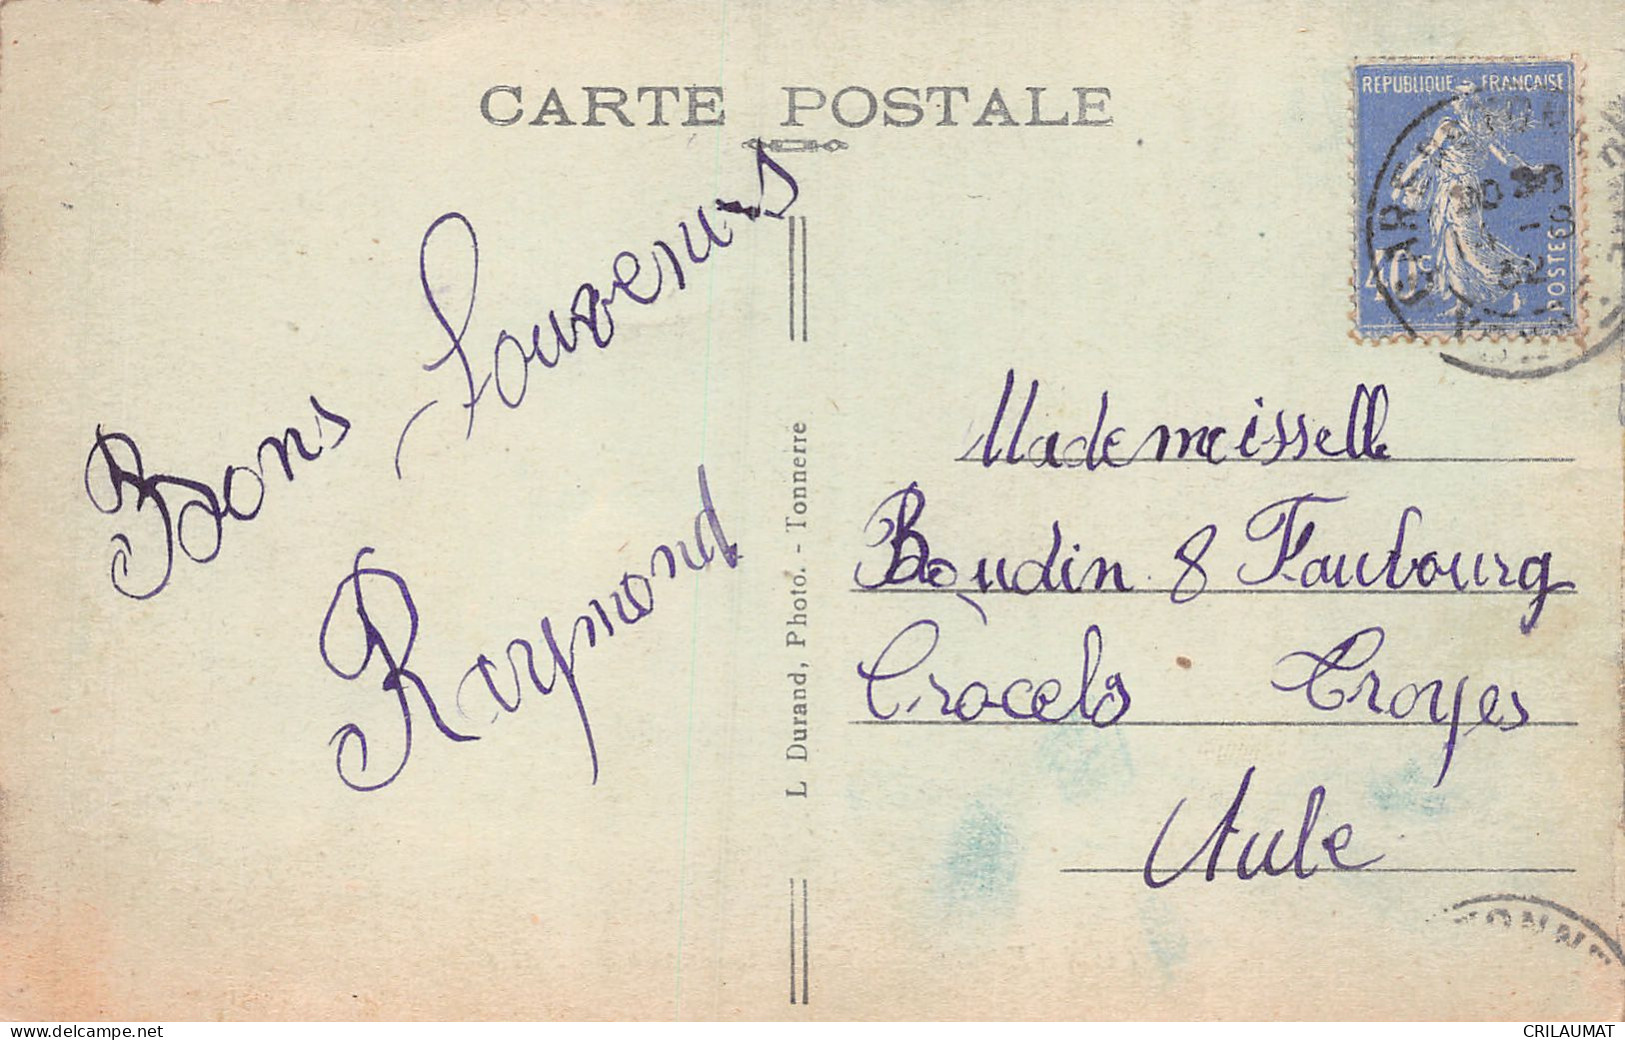 CARTE POSTALE
REPUBLIQUE FRANÇAISE
40c
POSTES
Bons Souvenirs
Raymond
L. Durand, Photo. - Tonnerre
Mademoisselle
Boudin 8 Faubourg
Crocels Troyes
Aube
YONNE
www.delcampe.net
CRILAUMAT